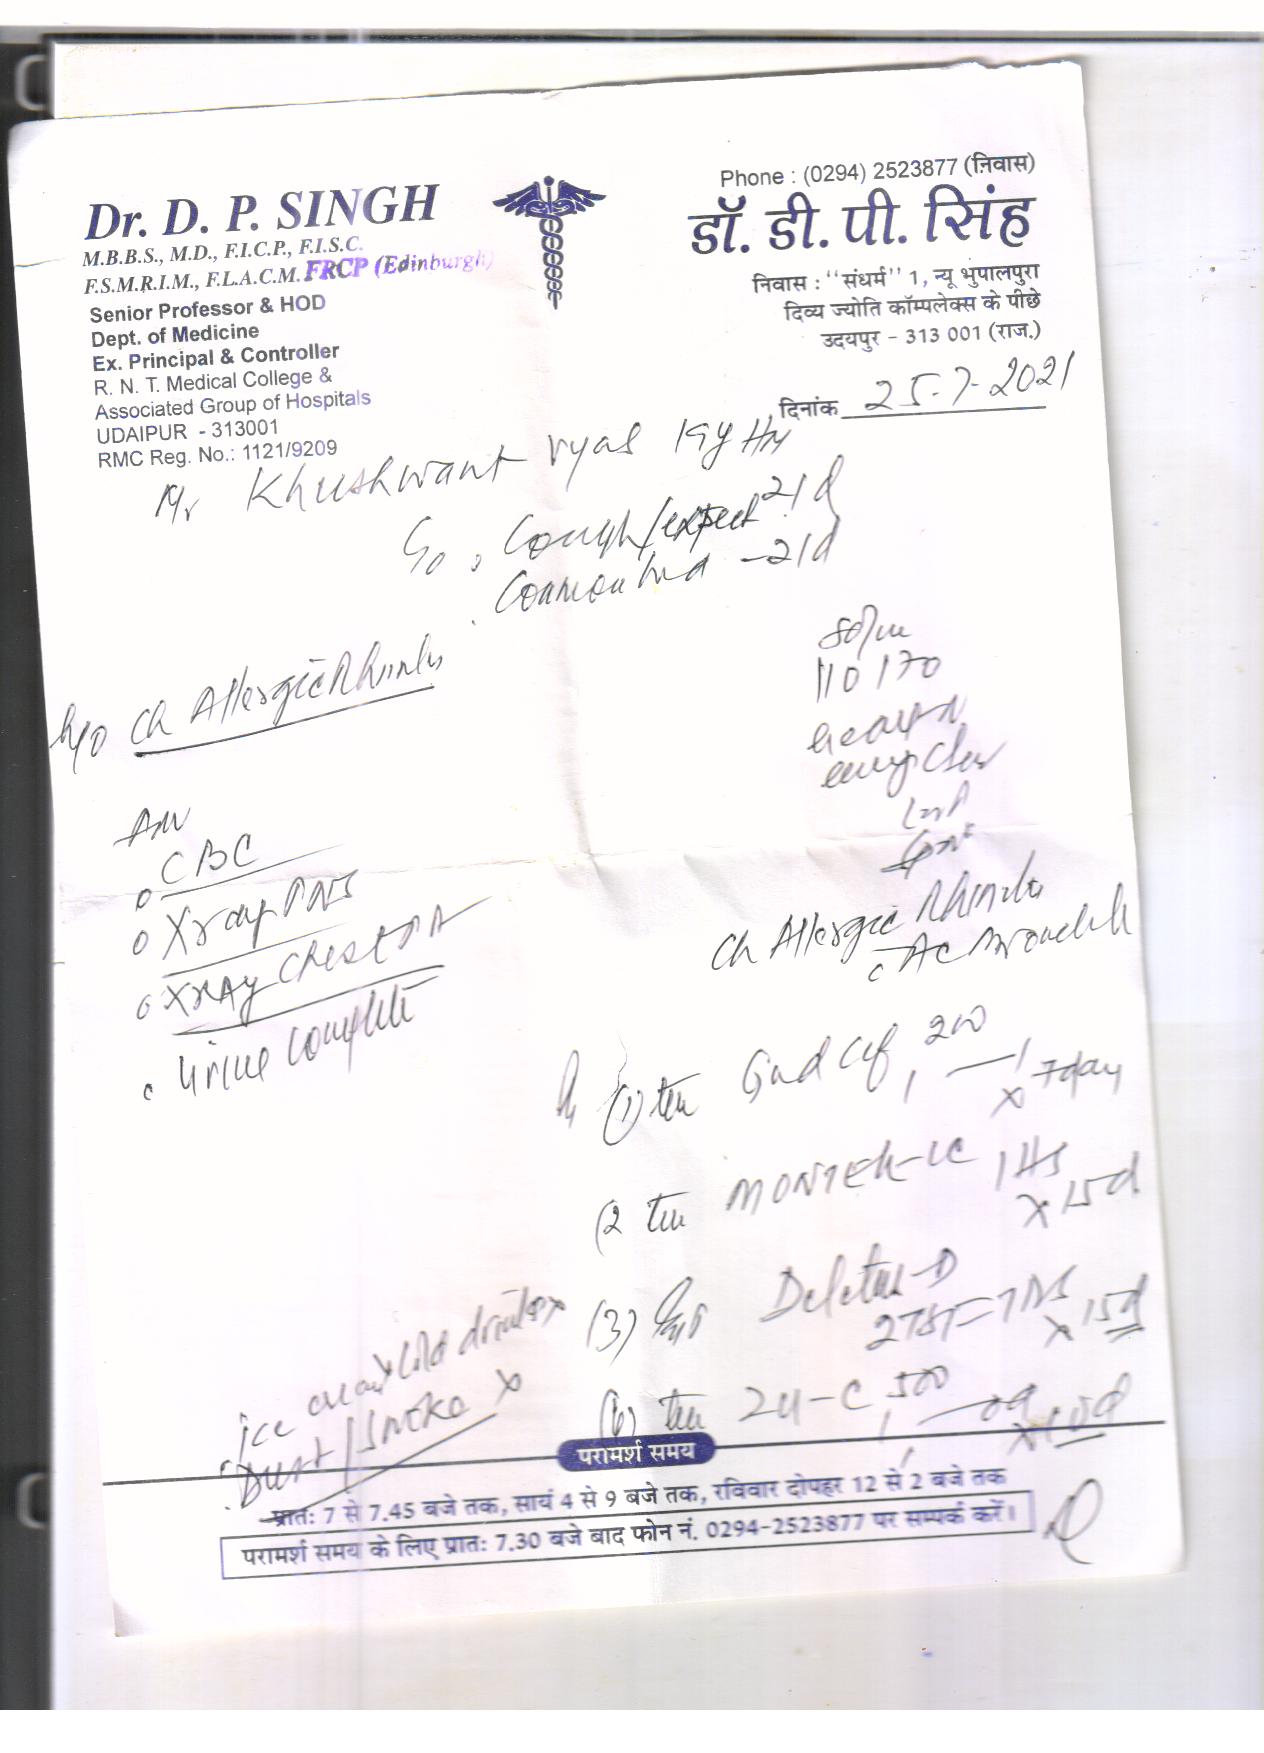 Dr. D. P. SINGH
M.B.B.S., M.D., F.I.C.P., F.I.S.C.
F.S.M.R.I.M., F.L.A.C.M. FRCP (Edinburgh)
Senior Professor & HOD
Dept. of Medicine
Ex. Principal & Controller
R. N. T. Medical College &
Associated Group of Hospitals
UDAIPUR - 313001
RMC Reg. No.: 1121/9209
Phone : (0294) 2523877 (निवास)
डॉ. डी. पी. सिंह
निवास : ‘‘संधर्म’’ 1, न्यू भुपालपुरा
दिव्य ज्योति कॉम्पलेक्स के पीछे
उदयपुर - 313 001 (राज.)
दिनांक 25-7-2021
Mr Khushwant vyas 19y
C/o . Cough/expect 21d
- 21d
h/o Ch Allergic Rhinitis
80/m
110/70
CBC
Xray PNS
XRAY Chest PA
Urine Complete
Ch Allergic Rhinitis
(1) 200
x 7day
(2 MONTEK-LC 1 HS
x 15d
(3) D
x 15d
500
ice cream x cold drinks x
Dust/Smoke x
परामर्श समय
प्रातः 7 से 7.45 बजे तक, सायं 4 से 9 बजे तक, रविवार दोपहर 12 से 2 बजे तक
परामर्श समय के लिए प्रातः 7.30 बजे बाद फोन नं. 0294-2523877 पर सम्पर्क करें।